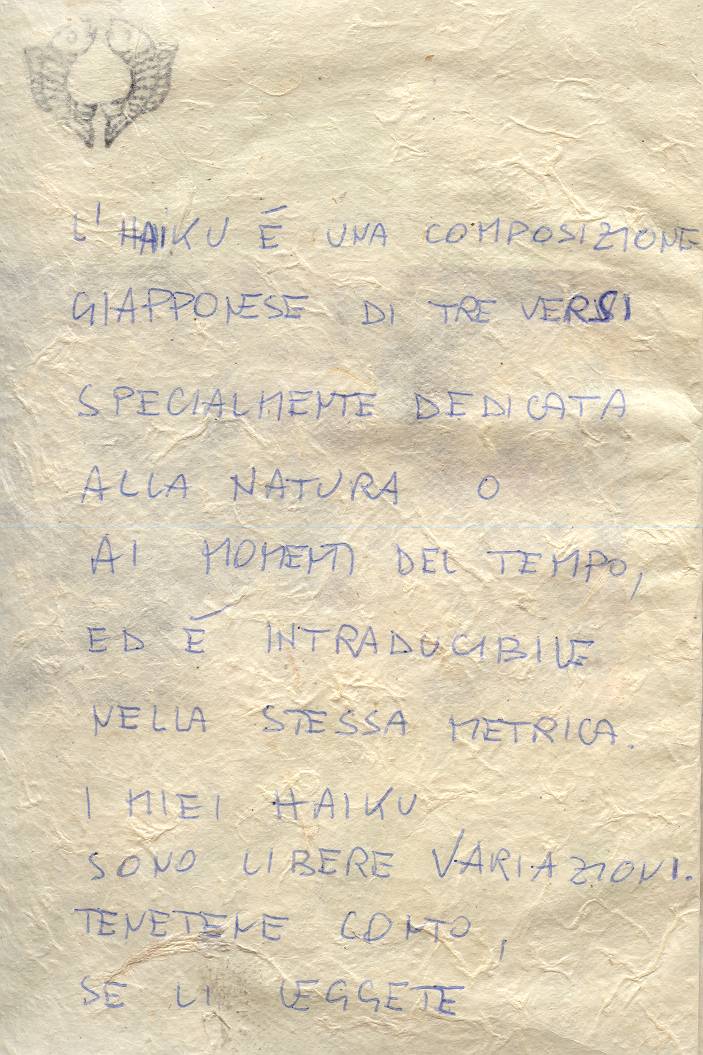 L'HAIKU É UNA COMPOSIZIONE
GIAPPONESE DI TRE VERSI
SPECIALMENTE DEDICATA
ALLA NATURA O
AI MOMENTI DEL TEMPO,
ED É INTRADUCIBILE
NELLA STESSA METRICA.
I MIEI HAIKU
SONO LIBERE VARIAZIONI.
TENETENE CONTO,
SE LI LEGGETE